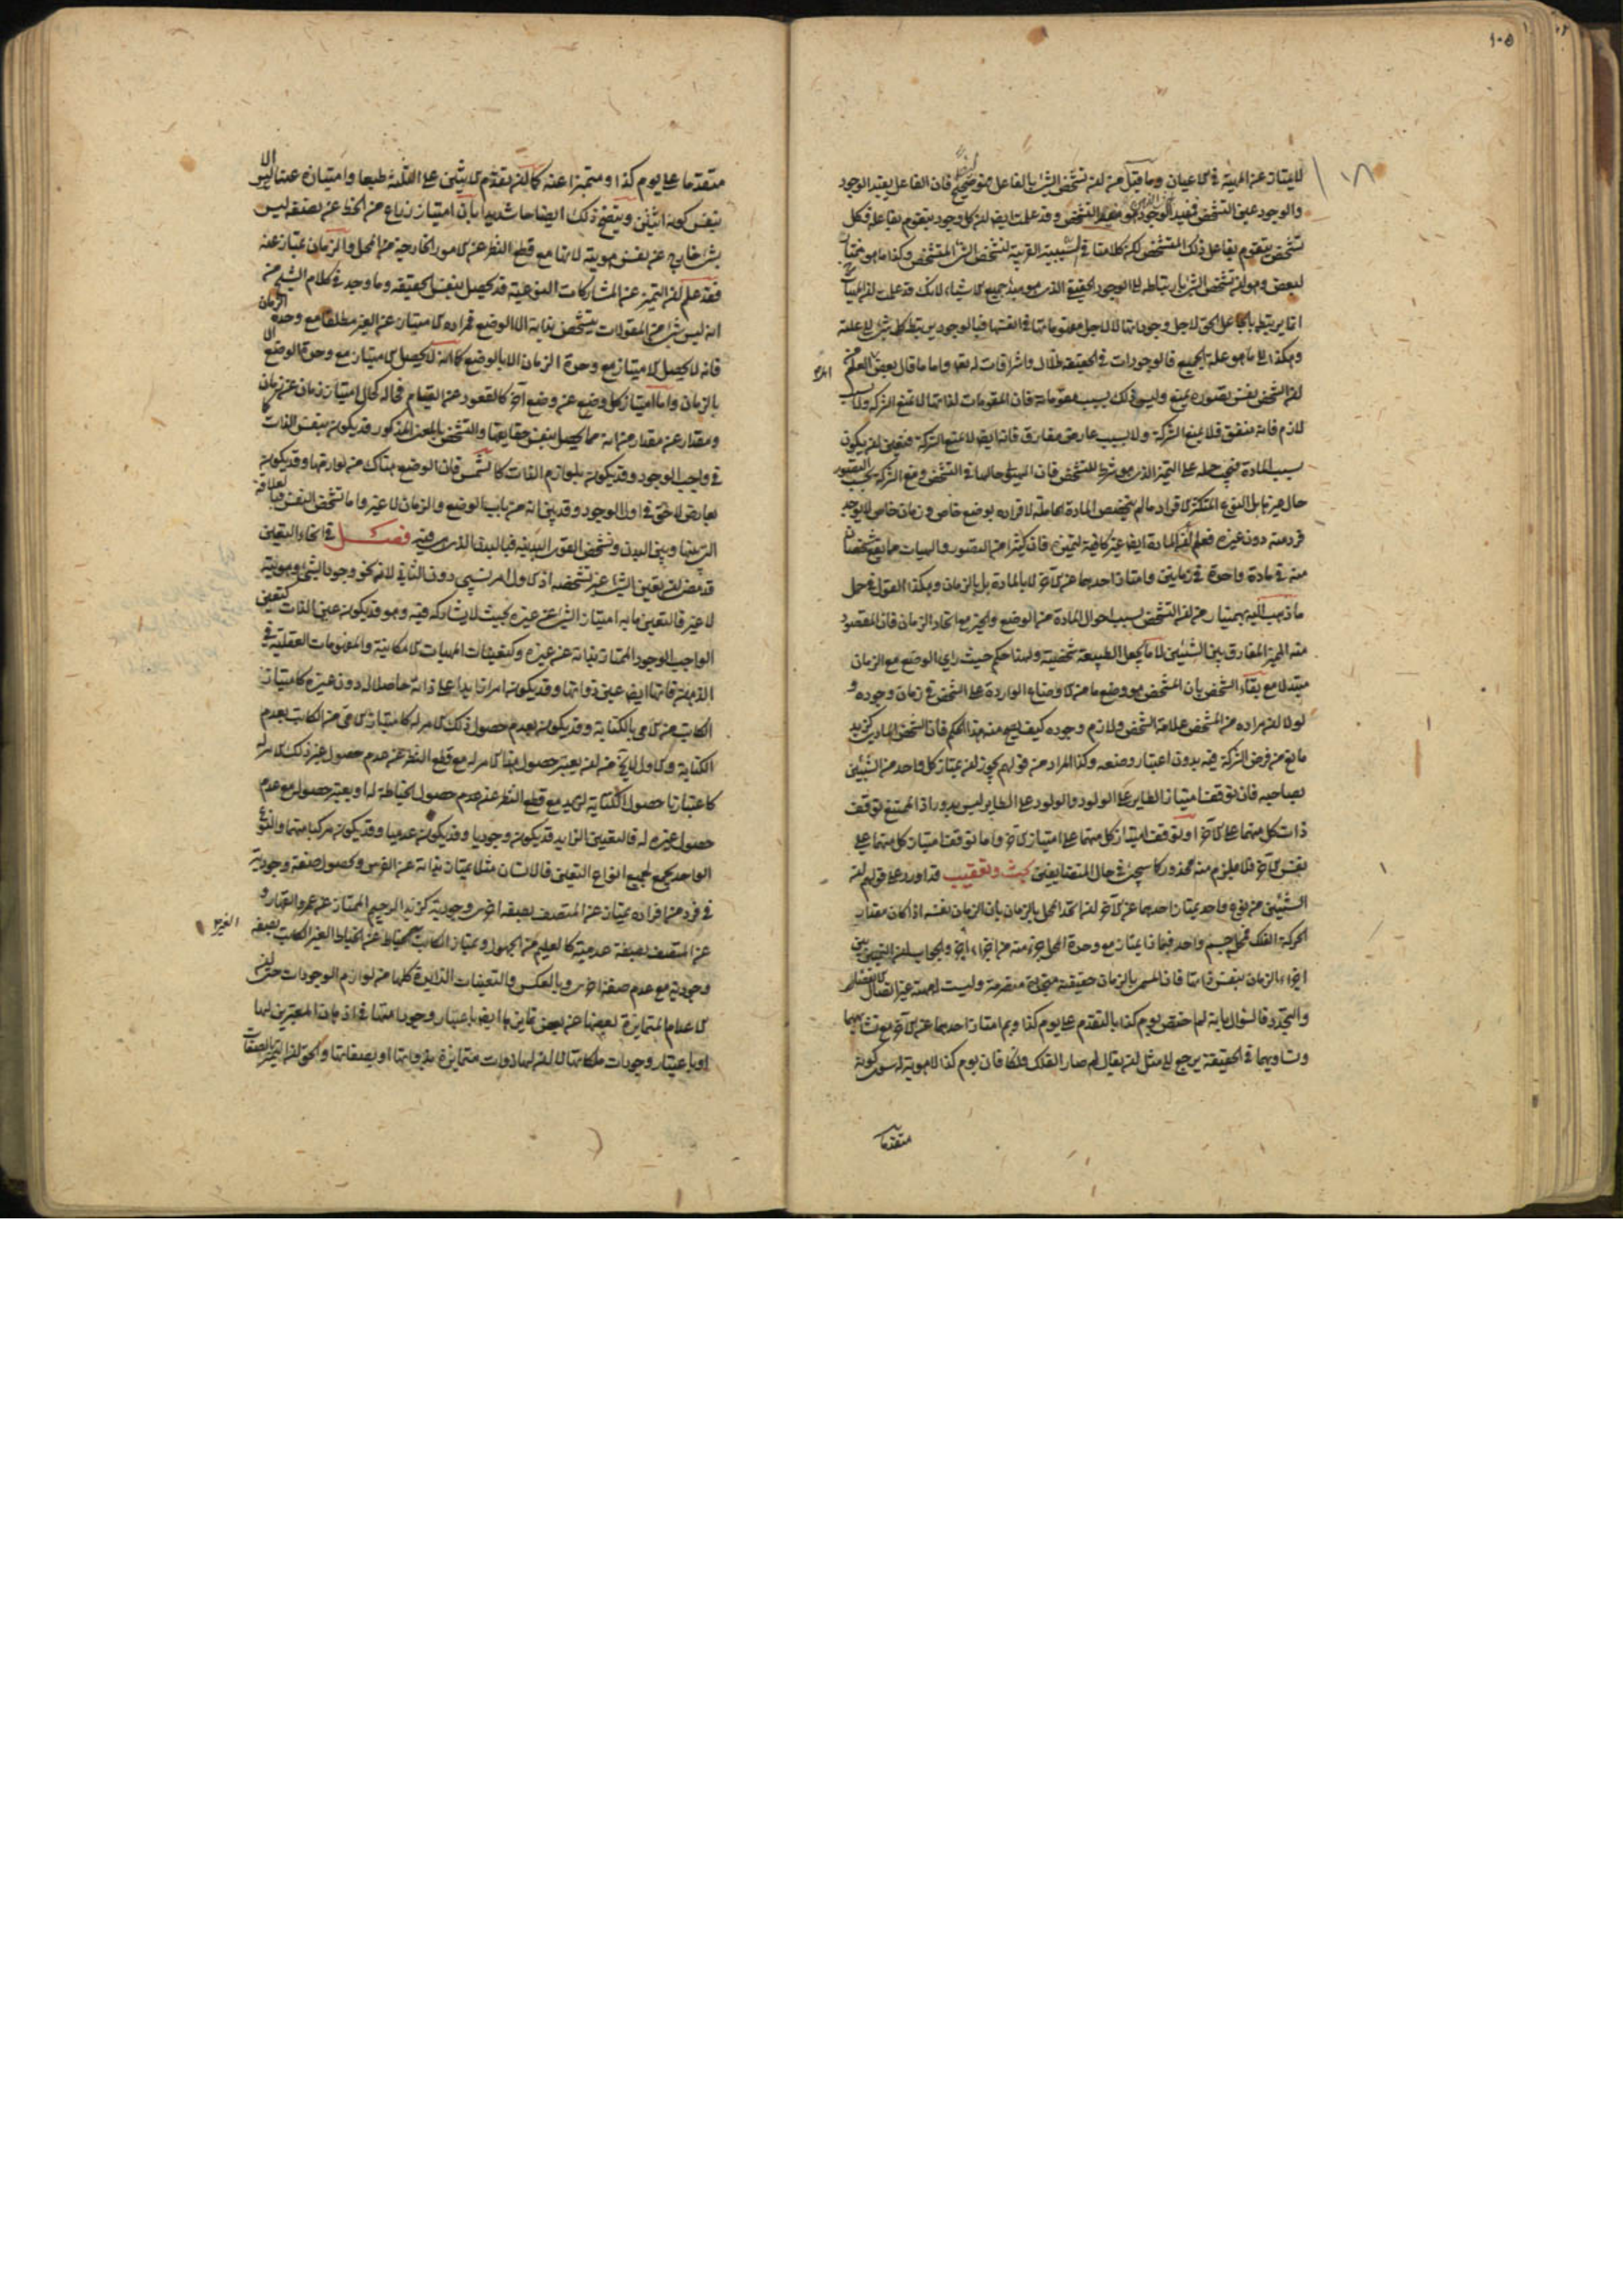 ١٠٥
للامتياز عن المهية في الاعيان وما قيل من ان تشخص الشيء بالفاعل فهو صحيح ايضا فان الفاعل يفيد الوجود
والوجود عين التشخص فمفيد الوجود هو مفيد التشخص وقد علمت ايضا ان كل وجود يتقوم بفاعله فكل
تشخص يتقوم بفاعل ذلك المتشخص لكن كلامنا في السبب القريب لتشخص الشيء المتشخص وكذا ما هو مختار
لبعض وهو ان تشخص الشيء بارتباطه الى الوجود الحقيقي الذي هو مبدء جميع الاشياء لانك قد علمت ان المهيات
انما يرتبط بالجاعل الحق لاجل وجوداتها لا لاجل مفهوماتها في انفسها فبالوجود يرتبط كل شيء الى علته
وهكذا الى ما هو علة الجميع فالوجودات في الحقيقة ظلال واشراقات له تعالى واما ما قال بعض العلماء من
ان الشخص نفس تصوره يمنع وليس ذلك بسبب مقوماته فان المقومات لذاتها لا تمنع الشركة ولا بسبب
لازم فانه متفق فلا يمنع الشركة ولا بسبب عارض مفارق فانه ايضا لا يمنع الشركة فتعين ان يكون
بسبب المادة فيجب حمله على التميز الذي هو شرط للتشخص فان الهيولى حالها في التشخص ومنع الشركة بحسب التصور
حال غيرها بل النوع المتكثر الافراد ما لم يتخصص المادة الحاملة لافراده بوضع خاص وزمان خاص لا يوجد
فرد منه دون غيره فعلم ان المادة ايضا غير كافية للتميز فان كثيرا من الصور والهيئات مما يقع شخصان
منه في مادة واحدة في زمانين وامتاز احدهما عن الآخر لا بالمادة بل بالزمان وهكذا القول في حمل
ما ذهب اليه بهمنيار من ان التشخص بسبب احوال المادة من الوضع والحيز مع اتحاد الزمان فان المقصود
منه المميز الفارق بين الشيئين لا ما يجعل الطبيعة شخصية ولهذا حكم حيث راى الوضع مع الزمان
متبدلا مع بقاء الشخص بان المشخص هو وضع ما من الاوضاع الواردة على الشخص في زمان وجوده و
لولا ان مراده من المشخص علامة الشخص ولازم وجوده كيف يصح منه هذا الحكم فان الشخص المادي كزيد
مانع من فرض الشركة فيه بدون اعتبار وضعه وكذا المراد من قولهم يجوز ان يمتاز كل واحد من الشيئين
بصاحبه فان توقف امتياز الطاير على الولود والولود على الطاير ليس بدور اذ الممتنع توقف
ذات كل منهما على الآخر او توقف امتياز كل منهما على امتياز الآخر واما توقف امتياز كل منهما على
نفس الآخر فلا يلزم منه محذور كما سيجيء في حال المتضايفين بحث وتعقيب قد اورد على قولهم ان
الشيئين من نوع واحد يمتاز احدهما عن الآخر ان اتحدا محل بالزمان بان الزمان نفسه اذا كان مقدار
الحركة الفلك فمحل جسم واحد فبماذا يمتاز مع وحدة المحل جزء منه من اجزاء اخر والجواب ان التميز بين
اجزاء الزمان بنفس ذاتها فان المسمى بالزمان حقيقة متجددة متصرمة وليست له مهية غير اتصال الانقضاء
والتجدد فالسؤال بانه لم اختص يوم كذا بالتقدم على يوم كذا وبم امتاز احدهما عن الآخر مع تشابههما
وتساويهما في الحقيقة يرجع الى مثل ان يقال لم صار الفلك فلكا فان يوم كذا لا هوية له سوى كونه
متقدما
متقدما على يوم كذا ومتميزا عنه كما ان تقدم الاثنين على الثلثة طبعا وامتيازه عنها ليس الا
بنفس كونه اثنين ويتضح ذلك ايضاحا شديدا بان امتياز ذراع من الخط عن نصفه ليس
بشيء خارج عن نفس هويته لانها مع قطع النظر عن الامور الخارجية من المحل والزمان يمتاز عنه
فقد علم ان التميز عن المشاركات النوعية قد يحصل بنفس الحقيقة وما وجد في كلام الشيخ من
انه ليس شيء من المقولات يتشخص بذاته الا الوضع فمراده الامتياز عن الغير مطلقا مع وحدة الزمان
فانه لا يحصل الامتياز مع وحدة الزمان الا بالوضع كما انه لا يحصل الامتياز مع وحدة الوضع الا
بالزمان واما امتياز كل وضع عن وضع آخر كالقعود عن القيام فحاله كحال امتياز زمان عن زمان
ومقدار عن مقدار من انه مما يحصل بنفس حقايقها والتشخص بالمعنى المذكور قد يكون بنفس الذات كما
في واجب الوجود وقد يكون بلوازم الذات كالشمس فان الوضع هناك من لوازمها وقد يكون
بعارض لاحق في اول الوجود وقد بين انه من باب الوضع والزمان لا غير واما تشخص النفس فبالعلاقة
التي بينها وبين البدن وتشخص القوى البدنية فبالبدن الذي هي فيه فصل في انحاء التعين
قد مضى ان تعين الشيء غير تشخصه اذ الاول امر نسبي دون الثاني لانه نحو وجود الشيء وهويته
لا غير فالتعين ما به امتياز الشيء عن غيره بحيث لا يشاركه فيه وهو قد يكون عين الذات كتعين
الواجب الوجود الممتاز بذاته عن غيره وكتعينات المهيات الامكانية والمفهومات العقلية في
الذهن فانها ايضا عين ذواتها وقد يكون امرا زايدا على ذاته حاصلا له دون غيره كامتياز
الكاتب من الامي بالكتابة وقد يكون بعدم حصول ذلك الامر له كامتياز الامي من الكاتب بعدم
الكتابة والاول لا يخ من ان يعتبر حصول هذا الامر له مع قطع النظر عن عدم حصول غير ذلك الامر له
كاعتبارنا حصول الكتابة لزيد مع قطع النظر عن عدم حصول الخياطة له او يعتبر حصوله مع عدم
حصول غيره له فالتعين الزايد قد يكون وجوديا وقد يكون عدميا وقد يكون مركبا منهما والنوع
الواحد يجمع لجميع انواع التعين فالانسان مثلا يمتاز بذاته عن الفرس وبحصول صفة وجودية
في فرد من افراده يمتاز عن المتصف بصفة اخرى وجودية كزيد الرحيم الممتاز عن عمرو القهار و
عن المتصف بصفة عدمية كالعليم من الجهول ويمتاز الكاتب الغير الخياط عن الخياط الغير الكاتب بصفة
وجودية مع عدم صفة اخرى وبالعكس والتعينات الزايدة كلها من لوازم الوجودات حتى ان
الاعدام المتمايزة بعضها عن بعض تمايزها ايضا باعتبار وجودها في اذهان المعتبرين لها
او باعتبار وجودات ملكاتها لا ان لها ذوات متمايزة بذواتها او بصفاتها والحق ان التميز بالصفات